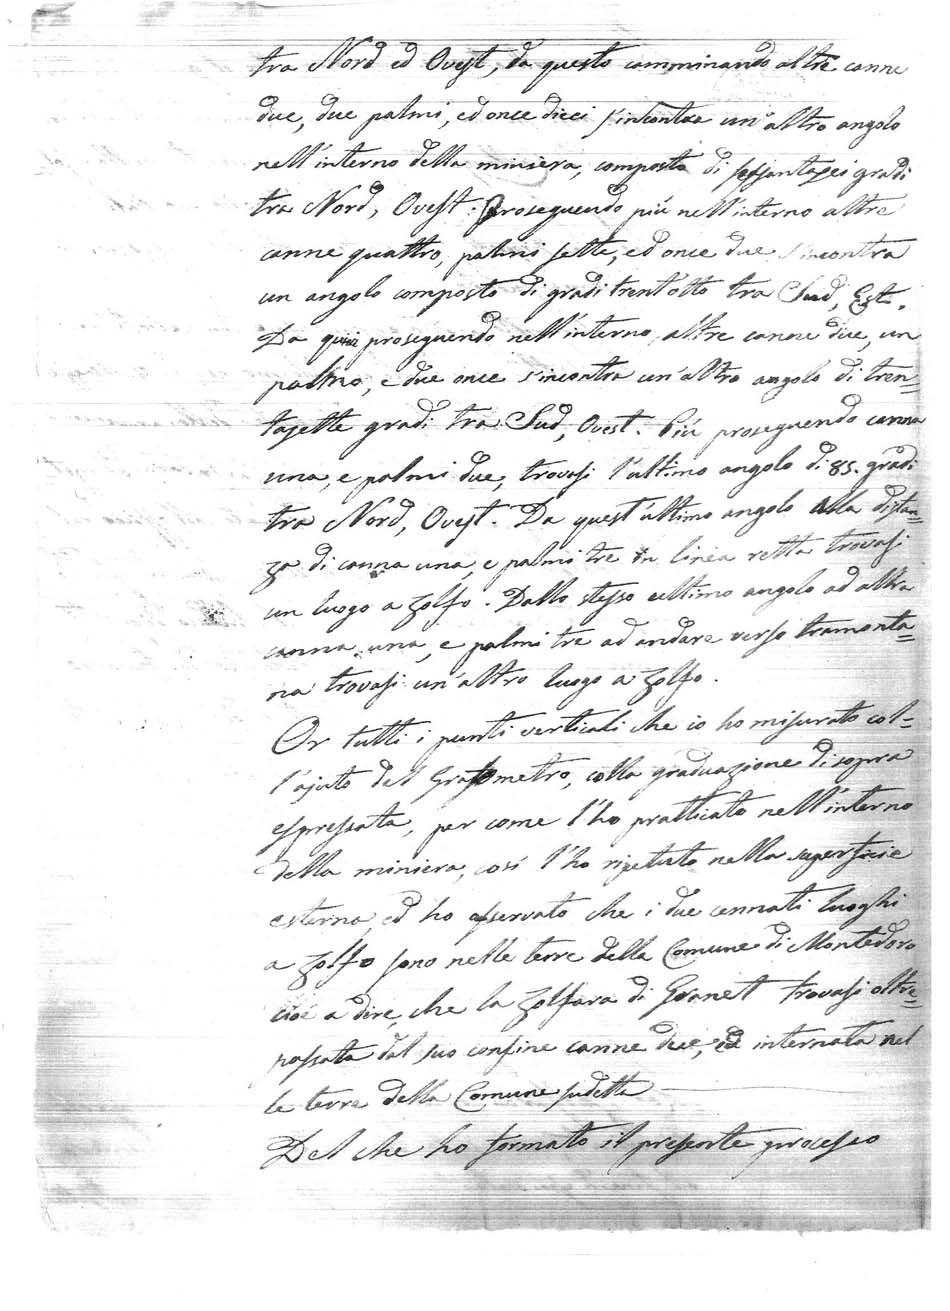 tra Nord ed Ovest, da questo camminando altre canne
due, due palmi, ed once dieci s'incontra un'altro angolo
nell'interno della miniera, composto di sessantasei gradi
tra Nord, Ovest. Proseguendo più nell'interno altre
canne quattro, palmi sette, ed once due s'incontra
un angolo composto di gradi trentotto tra Sud, Est.
Da qui proseguendo nell'interno altre canne due, un
palmo, e due once s'incontra un'altro angolo di tren=
tasette gradi tra Sud, Ovest. Più proseguendo canna
una, e palmi due, trovasi l'ultimo angolo di 85. gradi
tra Nord, Ovest. Da quest'ultimo angolo alla distan=
za di canna una, e palmi tre in linea retta trovasi
un luogo a zolfo. Dallo stesso ultimo angolo ad altra
canna una, e palmi tre ad andare verso tramonta=
na trovasi un'altro luogo a zolfo.
Or tutti i punti verticali che io ho misurato col=
l'ajuto del Grafometro, colla graduazione di sopra
espressata, per come l'ho pratticato nell'interno
della miniera, così l'ho ripetuto nella superficie
esterna, ed ho osservato che i due cennati luoghi
a zolfo sono nelle terre della Comune di Montedoro
cioè a dire, che la zolfara di Granet trovasi oltre=
passata dal suo confine canne due, ed internata nel
le terre della Comune sudetta
Del che ho formato il presente processo